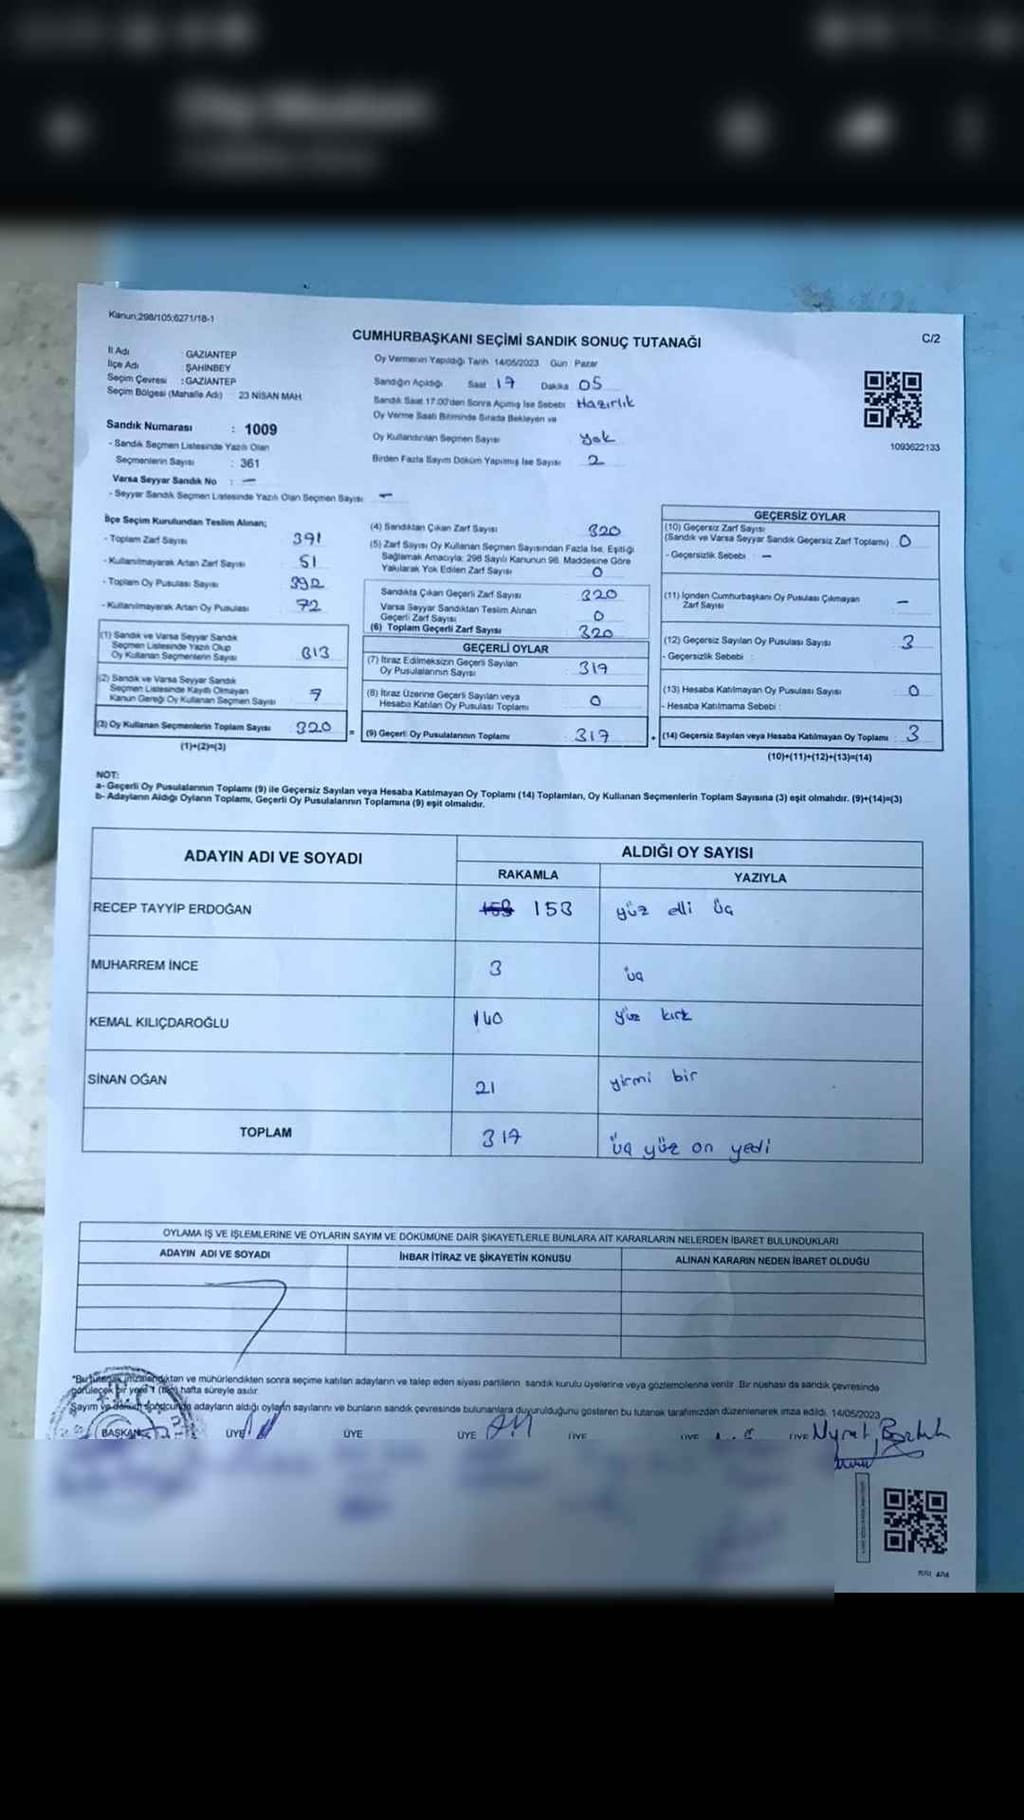 Kanun;298/105;6271/18-1
CUMHURBAŞKANI SEÇİMİ SANDIK SONUÇ TUTANAĞI
C/2
İl Adı : GAZİANTEP
İlçe Adı : ŞAHİNBEY
Seçim Çevresi : GAZİANTEP
Seçim Bölgesi (Mahalle Adı) 23 NİSAN MAH.
Sandık Numarası : 1009
- Sandık Seçmen Listesinde Yazılı Olan
Seçmenlerin Sayısı : 361
Varsa Seyyar Sandık No : —
- Seyyar Sandık Seçmen Listesinde Yazılı Olan Seçmen Sayısı —
Oy Vermenin Yapıldığı Tarih 14/05/2023 Gün : Pazar
Sandığın Açıldığı Saat 17 Dakika 05
Sandık Saat 17:00'den Sonra Açılmış İse Sebebi Hazırlık
Oy Verme Saati Bitiminde Sırada Bekleyen ve
Oy Kullandırılan Seçmen Sayısı yok
Birden Fazla Sayım Döküm Yapılmış İse Sayısı 2
1093622133
İlçe Seçim Kurulundan Teslim Alınan;
- Toplam Zarf Sayısı 391
- Kullanılmayarak Artan Zarf Sayısı 51
- Toplam Oy Pusulası Sayısı 392
- Kullanılmayarak Artan Oy Pusulası 72
(1) Sandık ve Varsa Seyyar Sandık
Seçmen Listesinde Yazılı Olup
Oy Kullanan Seçmenlerin Sayısı 313
(2) Sandık ve Varsa Seyyar Sandık
Seçmen Listesinde Kayıtlı Olmayan
Kanun Gereği Oy Kullanan Seçmen Sayısı 7
(3) Oy Kullanan Seçmenlerin Toplam Sayısı 320
(1)+(2)=(3)
(4) Sandıktan Çıkan Zarf Sayısı 320
(5) Zarf Sayısı Oy Kullanan Seçmen Sayısından Fazla İse, Eşitliği
Sağlamak Amacıyla; 298 Sayılı Kanunun 98. Maddesine Göre
Yakılarak Yok Edilen Zarf Sayısı 0
Sandıkta Çıkan Geçerli Zarf Sayısı 320
Varsa Seyyar Sandıktan Teslim Alınan
Geçerli Zarf Sayısı 0
(6) Toplam Geçerli Zarf Sayısı 320
GEÇERLİ OYLAR
(7) İtiraz Edilmeksizin Geçerli Sayılan
Oy Pusulalarının Sayısı 317
(8) İtiraz Üzerine Geçerli Sayılan veya
Hesaba Katılan Oy Pusulası Toplamı 0
= (9) Geçerli Oy Pusulalarının Toplamı 317
GEÇERSİZ OYLAR
(10) Geçersiz Zarf Sayısı
(Sandık ve Varsa Seyyar Sandık Geçersiz Zarf Toplamı) 0
- Geçersizlik Sebebi : —
(11) İçinden Cumhurbaşkanı Oy Pusulası Çıkmayan
Zarf Sayısı —
(12) Geçersiz Sayılan Oy Pusulası Sayısı 3
- Geçersizlik Sebebi :
(13) Hesaba Katılmayan Oy Pusulası Sayısı 0
- Hesaba Katılmama Sebebi :
+ (14) Geçersiz Sayılan veya Hesaba Katılmayan Oy Toplamı 3
(10)+(11)+(12)+(13)=(14)
NOT:
a- Geçerli Oy Pusulalarının Toplamı (9) ile Geçersiz Sayılan veya Hesaba Katılmayan Oy Toplamı (14) Toplamları, Oy Kullanan Seçmenlerin Toplam Sayısına (3) eşit olmalıdır. (9)+(14)=(3)
b- Adayların Aldığı Oyların Toplamı, Geçerli Oy Pusulalarının Toplamına (9) eşit olmalıdır.
ADAYIN ADI VE SOYADI
ALDIĞI OY SAYISI
RAKAMLA YAZIYLA
RECEP TAYYİP ERDOĞAN 153 yüz elli üç
MUHARREM İNCE 3 üç
KEMAL KILIÇDAROĞLU 140 yüz kırk
SİNAN OĞAN 21 yirmi bir
TOPLAM 317 üç yüz on yedi
OYLAMA İŞ VE İŞLEMLERİNE VE OYLARIN SAYIM VE DÖKÜMÜNE DAİR ŞİKAYETLERLE BUNLARA AİT KARARLARIN NELERDEN İBARET BULUNDUKLARI
ADAYIN ADI VE SOYADI İHBAR İTİRAZ VE ŞİKAYETİN KONUSU ALINAN KARARIN NEDEN İBARET OLDUĞU
*Bu tutanak imzalandıktan ve mühürlendikten sonra seçime katılan adayların ve talep eden siyasi partilerin sandık kurulu üyelerine veya gözlemcilerine verilir. Bir nüshası da sandık çevresinde
görülecek bir yere 1 (bir) hafta süreyle asılır.
Sayım ve döküm sonucunda adayların aldığı oyların sayılarını ve bunların sandık çevresinde bulunanlara duyurulduğunu gösteren bu tutanak tarafımızdan düzenlenerek imza edildi. 14/05/2023
BAŞKAN ÜYE ÜYE ÜYE ÜYE ÜYE ÜYE